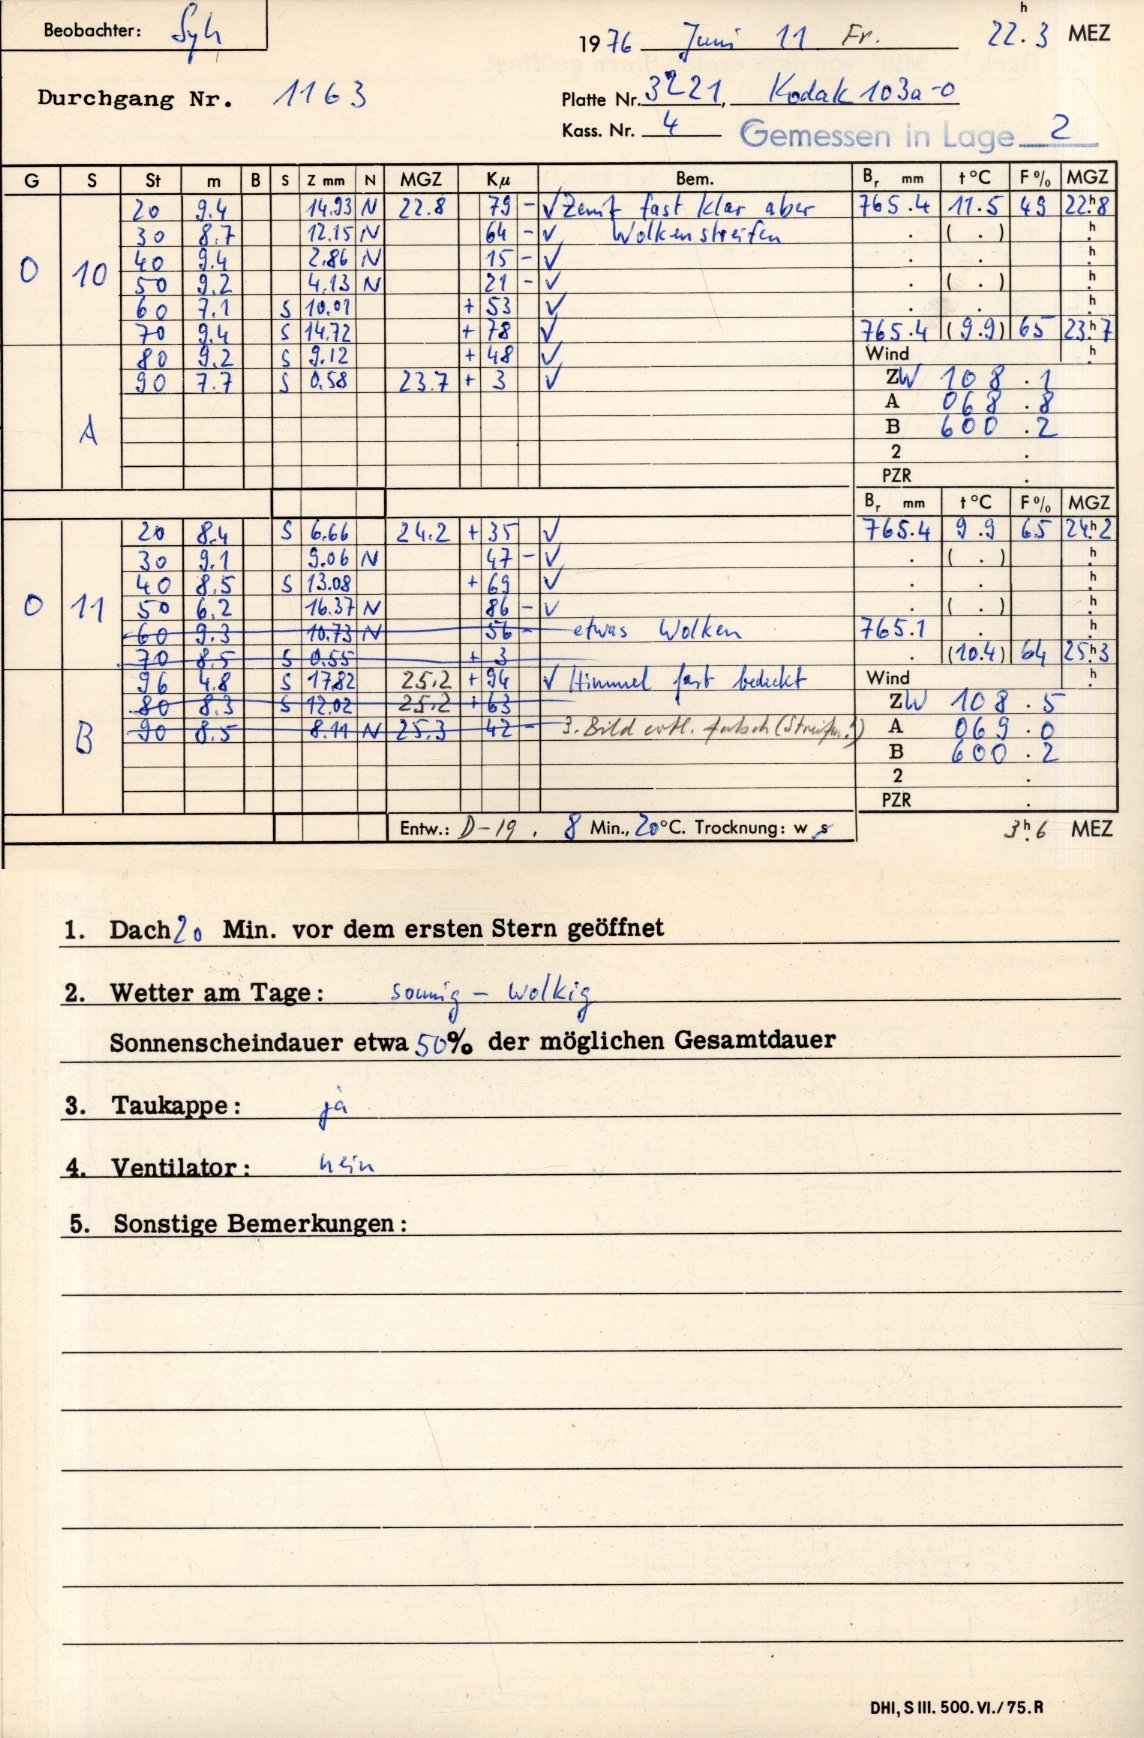 Beobachter: Syh
1976 Juni 11 Fr. 22.h3 MEZ
Durchgang Nr. 1163
Platte Nr. 3221, Kodak 103a-O
Kass. Nr. 4 Gemessen in Lage 2
G S St m B S Z mm N MGZ Kμ Bem. Br mm t °C F % MGZ
20 9.4 14.93 N 22.8 79 - √ Zenit fast klar aber 765.4 11.5 49 22.h8
30 8.7 12.15 N 64 - √ Wolkenstreifen . ( . ) h
0 10 40 9.4 2.86 N 15 - √ . . h
50 9.2 4.13 N 21 - √ . ( . ) h
60 7.1 S 10.01 + 53 √ . . h
70 9.4 S 14.72 + 78 √ 765.4 (9.9) 65 23.h7
80 9.2 S 9.12 + 48 √ Wind h
90 7.7 S 0.58 23.7 + 3 √ ZW 108.1
A A 068.8
B 600.2
2 .
PZR .
Br mm t °C F % MGZ
20 8.4 S 6.66 24.2 + 35 √ 765.4 9.9 65 24.h2
30 9.1 9.06 N 47 - √ . ( . ) h
40 8.5 S 13.08 + 69 √ . . h
0 11 50 6.2 16.37 N 86 - √ . ( . ) h
60 9.3 10.73 N 56 - etwas Wolken 765.1 . h
70 8.5 S 0.55 + 3 . (10.4) 64 25.h3
96 4.8 S 17.82 25.2 + 94 √ Himmel fast bedeckt Wind h
80 8.3 S 12.02 25.2 + 63 ZW 108.5
B 90 8.5 8.11 N 25.3 42 - 3. Bild evtl. falsch (Streifen!) A 069.0
B 600.2
2 .
PZR .
Entw.: D-19, 8 Min., 20°C. Trocknung: w s 3.h6 MEZ
1. Dach 20 Min. vor dem ersten Stern geöffnet
2. Wetter am Tage: sonnig - wolkig
Sonnenscheindauer etwa 50% der möglichen Gesamtdauer
3. Taukappe: ja
4. Ventilator: nein
5. Sonstige Bemerkungen:
DHI, S III. 500. VI./75. R